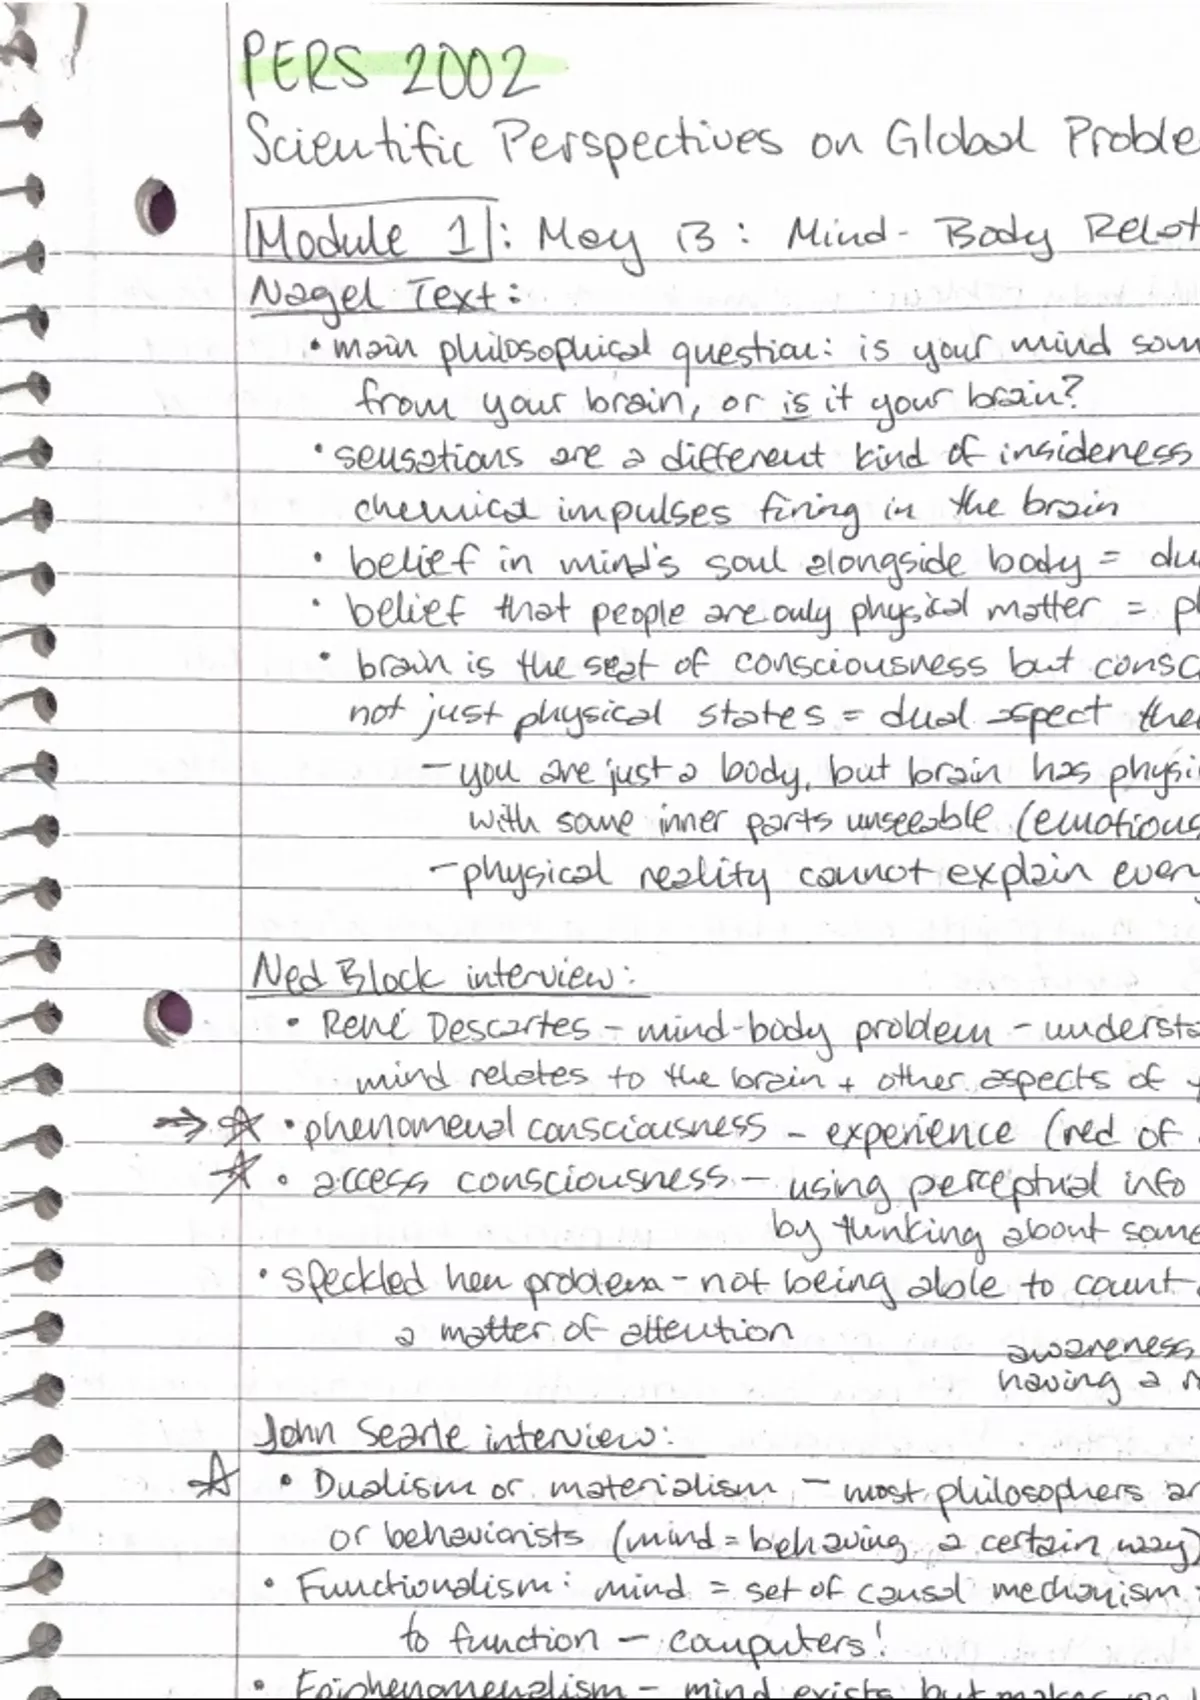 PERS 2002
Scientific Perspectives on Global Proble
Module 1: May 13: Mind-Body Relat
Nagel Text:
• main philosophical question: is your mind som
from your brain, or is it your brain?
• sensations are a different kind of insideness
chemical impulses firing in the brain
• belief in mind's soul alongside body = du
• belief that people are only physical matter = ph
• brain is the seat of consciousness but consc
not just physical states = dual aspect the
- you are just a body, but brain has physi
with some inner parts unseeable (emotions
- physical reality cannot explain every
Ned Block interview:
• René Descartes - mind-body problem - understa
mind relates to the brain + other aspects of
→ ☆ • phenomenal consciousness - experience (red of
☆ • access consciousness - using perceptual info
by thinking about some
• speckled hen problem - not being able to count
a matter of attention
awareness
having a
John Searle interview:
☆ • Dualism or materialism - most philosophers ar
or behaviorists (mind = behaving a certain way)
• Functionalism: mind = set of causal mechanism
to function - computers!
• Epiphenomenalism - mind exists but makes no